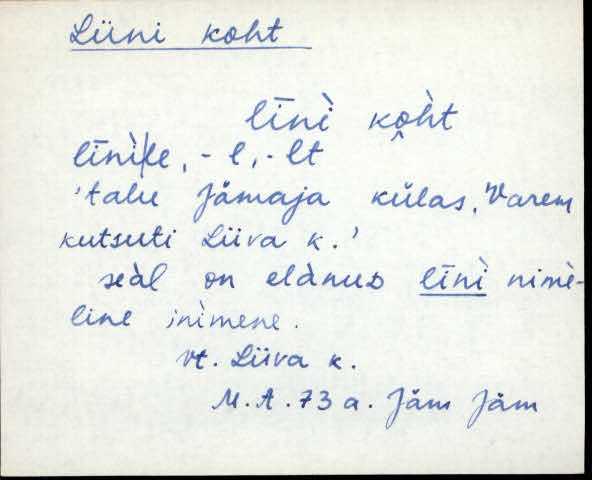 Liini koht
līnì ko̭h̀t
līnì|le, -l, -lt
'talu Jämaja külas. Varem
kutsuti Liiva k.'
seàl on elànus līnì nimè-
line inìmene.
vt. Liiva k.
M.A. 73 a. Jäm Jäm